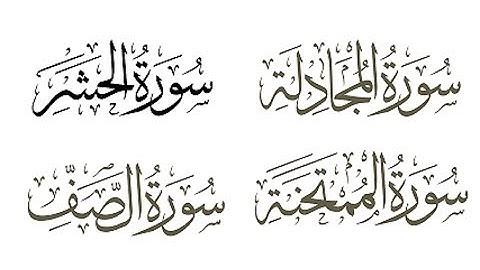 سُورَةُ المُجَادلَةِ
سُورَةُ الحَشرِ
سُورَةُ المُمتَحنَةِ
سُورَةُ الصَّفِّ